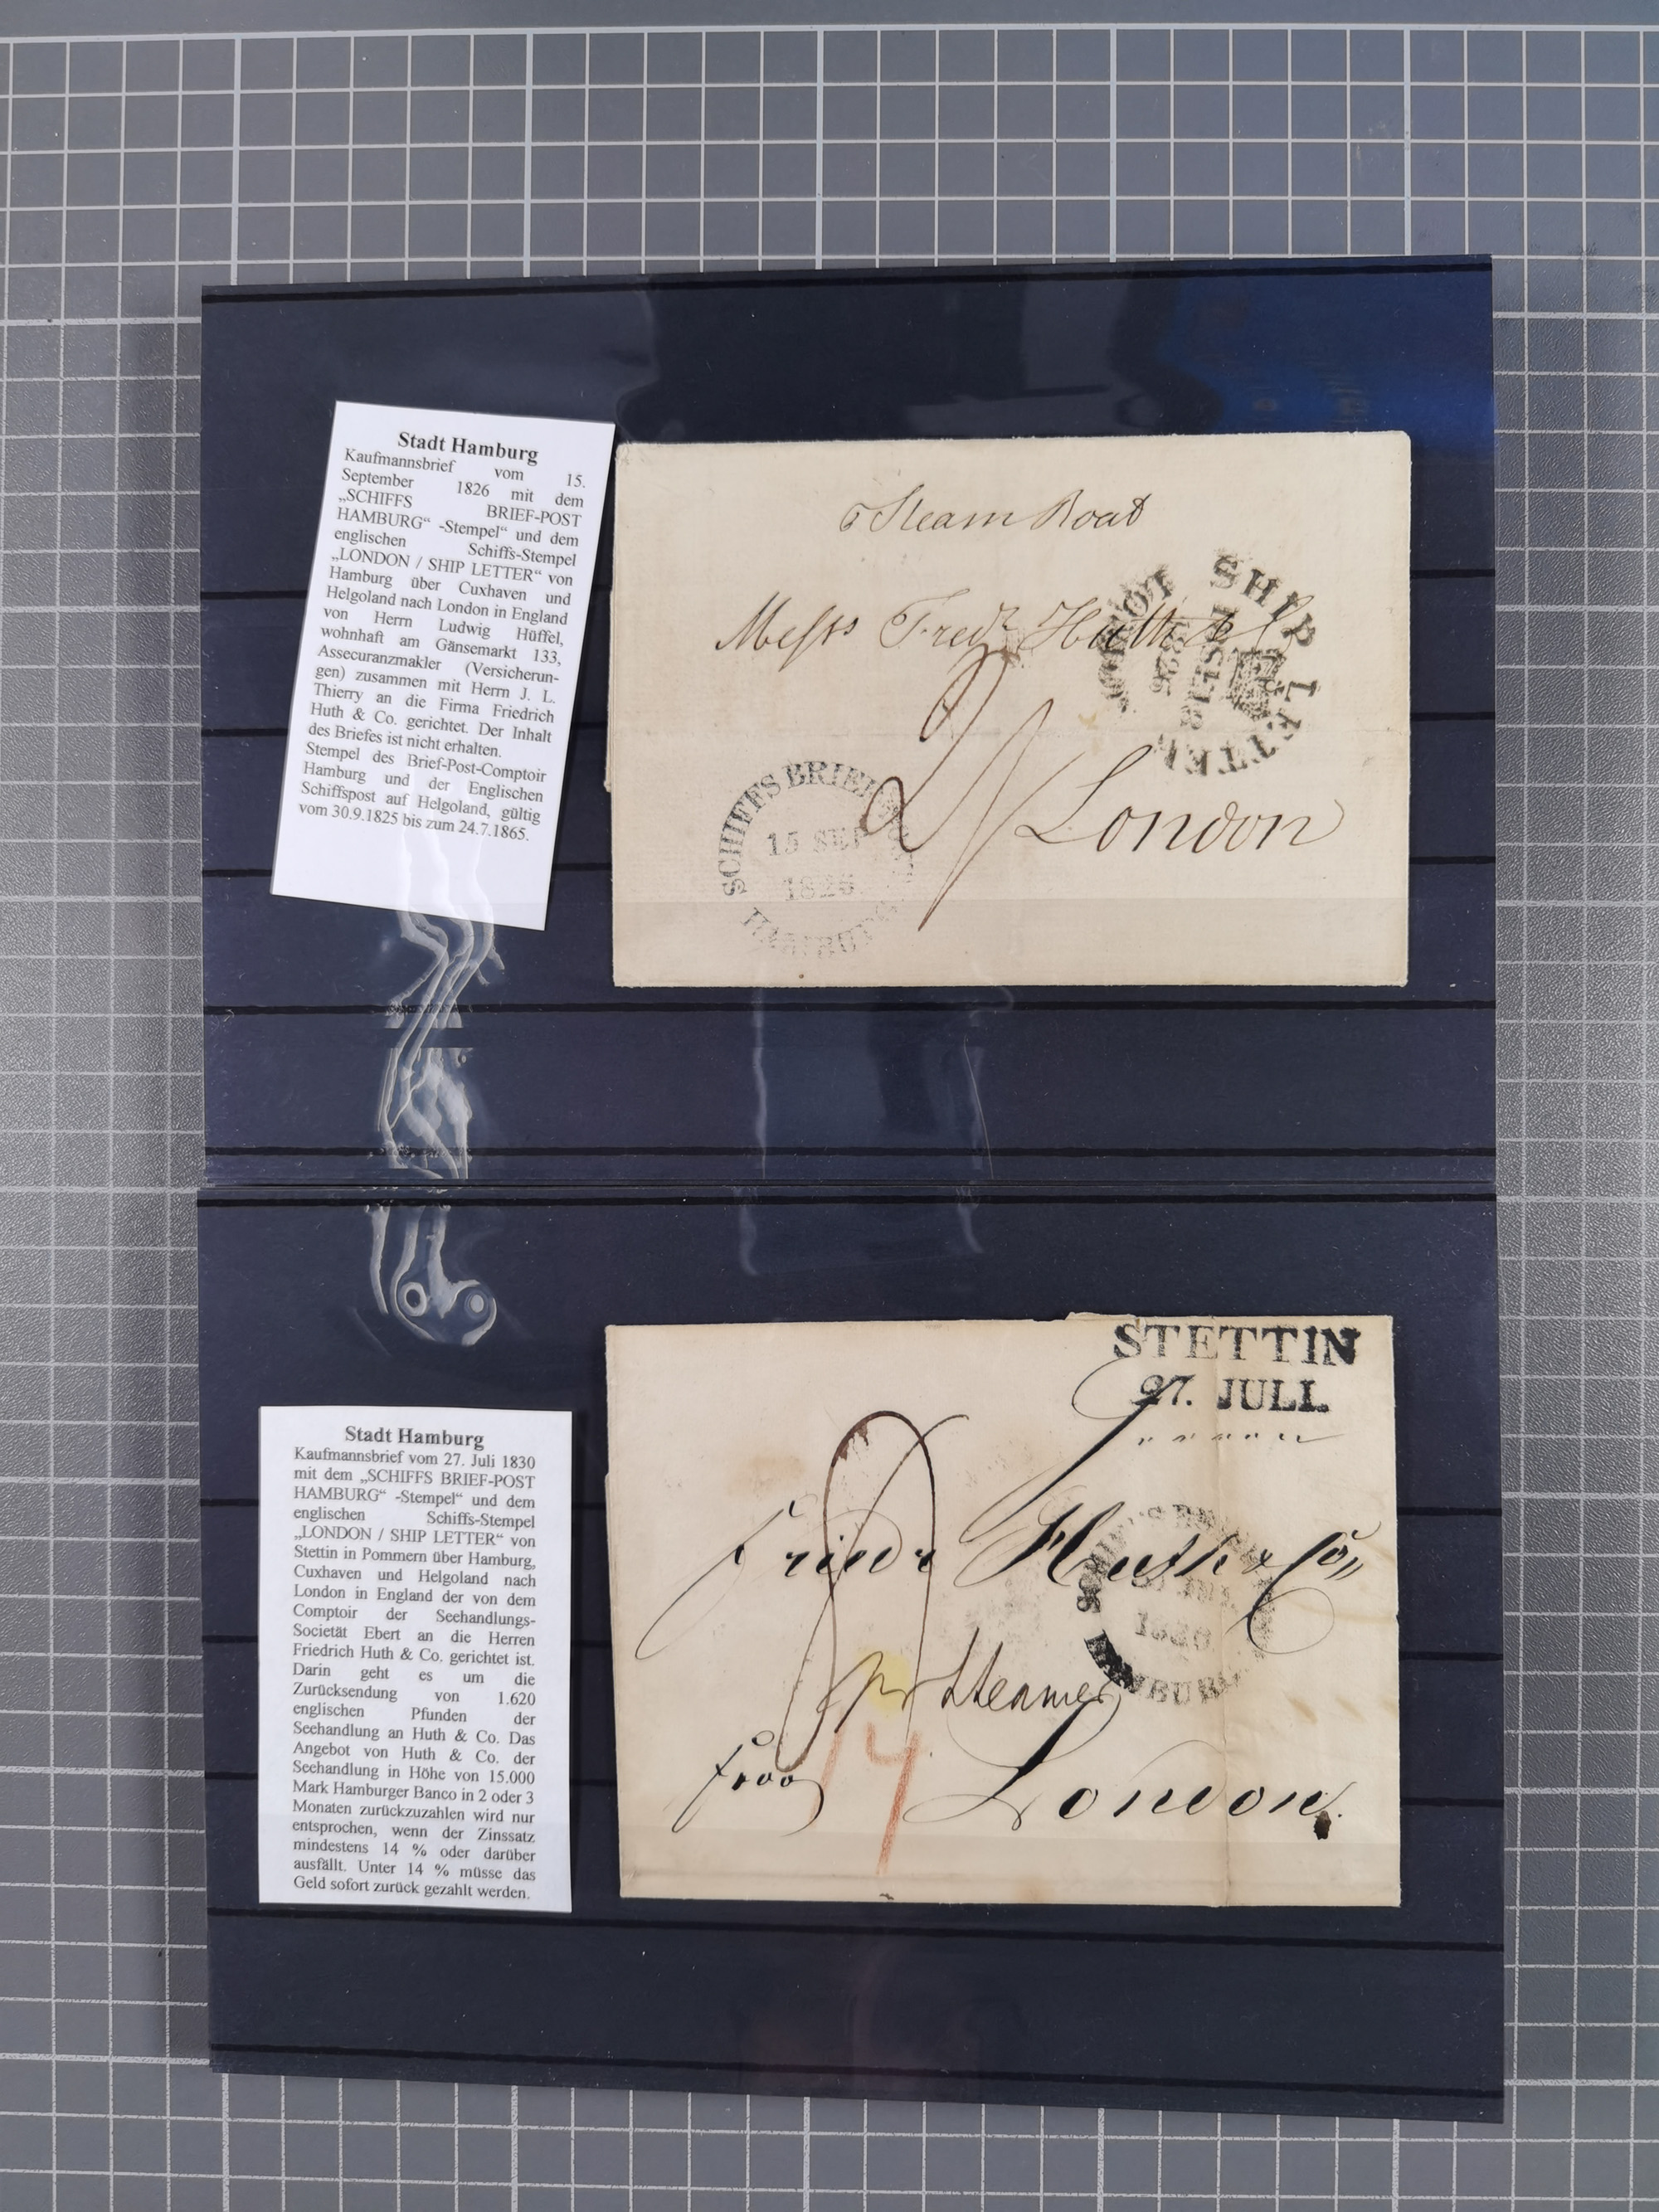 Stadt Hamburg
Kaufmannsbrief vom 15.
September 1826 mit dem
„SCHIFFS BRIEF-POST
HAMBURG“ -Stempel“ und dem
englischen Schiffs-Stempel
„LONDON / SHIP LETTER“ von
Hamburg über Cuxhaven und
Helgoland nach London in England
von Herrn Ludwig Hüffel,
wohnhaft am Gänsemarkt 133,
Assecuranzmakler (Versicherun-
gen) zusammen mit Herrn J. L.
Thierry an die Firma Friedrich
Huth & Co. gerichtet. Der Inhalt
des Briefes ist nicht erhalten.
Stempel des Brief-Post-Comptoir
Hamburg und der Englischen
Schiffspost auf Helgoland, gültig
vom 30.9.1825 bis zum 24.7.1865.
Steam Boat
Messrs Fredk Huth & Co
London
SHIP LETTER
1826
SCHIFFS BRIEF POST
15 SEP
1826
HAMBURG
Stadt Hamburg
Kaufmannsbrief vom 27. Juli 1830
mit dem „SCHIFFS BRIEF-POST
HAMBURG“ -Stempel“ und dem
englischen Schiffs-Stempel
„LONDON / SHIP LETTER“ von
Stettin in Pommern über Hamburg,
Cuxhaven und Helgoland nach
London in England der von dem
Comptoir der Seehandlungs-
Societät Ebert an die Herren
Friedrich Huth & Co. gerichtet ist.
Darin geht es um die
Zurücksendung von 1.620
englischen Pfunden der
Seehandlung an Huth & Co. Das
Angebot von Huth & Co. der
Seehandlung in Höhe von 15.000
Mark Hamburger Banco in 2 oder 3
Monaten zurückzuzahlen wird nur
entsprochen, wenn der Zinssatz
mindestens 14 % oder darüber
ausfällt. Unter 14 % müsse das
Geld sofort zurück gezahlt werden.
STETTIN
27. JULI.
Friedr Huth & Co
1830
HAMBURG
pr Steamer
London.
14